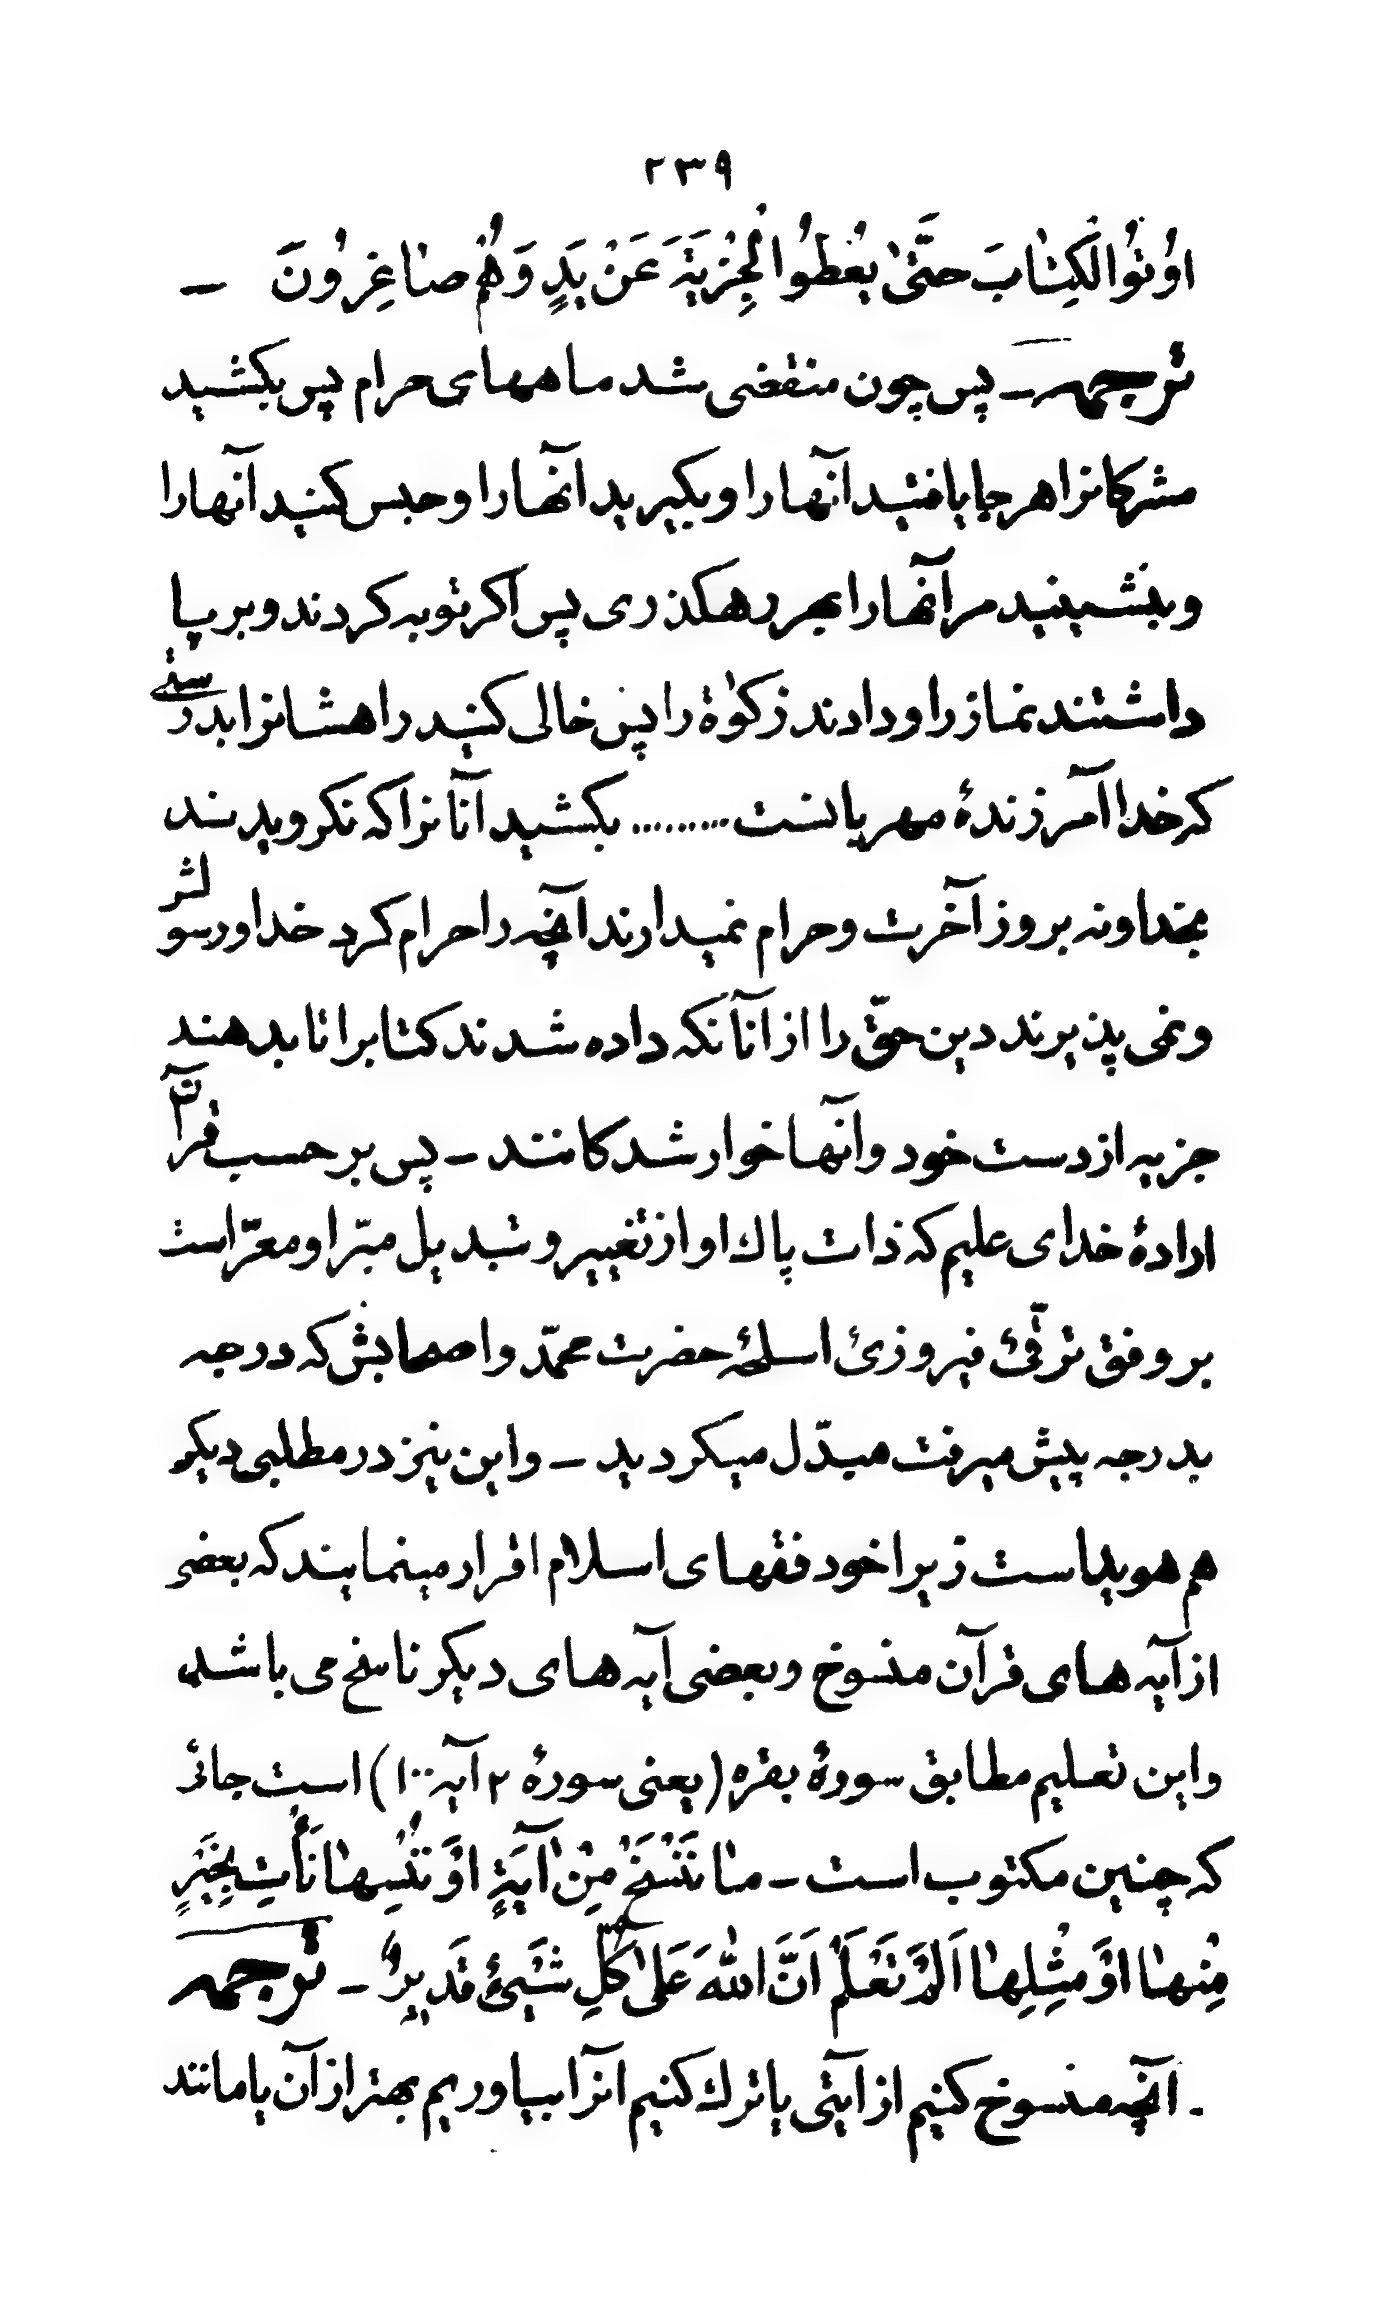 ۲۳۹
اُوْتُوا الْكِتٰابَ حَتّٰى يُعْطُوا الْجِزْيَةَ عَنْ يَدٍ وَهُمْ صٰاغِرُونَ ـ
ترجمه ـ پس چون منقضی شد ماههای حرام پس بکشید
مشرکانرا هر جا یافتید آنها را و بگیرید آنها را و حبس کنید آنها را
و بنشینید مر آنها را بهر رهگذری پس اگر توبه کردند و برپا
داشتند نماز را و دادند زکوٰة را پس خالی کنید راهشانرا بدرستی
که خدا آمرزندهٔ مهربانست ......... بکشید آنانرا که نگرویدند
بخدا و نه بروز آخرت و حرام نمیدارند آنچه را حرام کرد خدا و رسولش
و نمی پذیرند دین حقّ را از آنانکه داده شدند کتابرا تا بدهند
جزیه از دست خود و آنها خوارشدکانند ـ پس بر حسب قرآن
ارادهٔ خدای علیم که ذات پاك او از تغییر و تبدیل مبّرا و معرّاست
بر وفق ترقّئ فیروزئ اسلحهٔ حضرت محمّد و اصحابش که درجه
بدرجه پیش میرفت مبدّل میکردید ـ و این نیز در مطلبی دیکر
هم هویداست زیرا خود فقهای اسلام اقرار مینمایند که بعضی
از آیه های قرآن منسوخ و بعضی آیه های دیکر ناسخ می باشد
و این تعلیم مطابق سورهٔ بقره (یعنی سورهٔ ۲ آیه ۱۰۰) است جائی
که چنین مکتوب است ـ مٰا نَنْسَخْ مِنْ اٰيَةٍ اَوْ نُنْسِهٰا نَأْتِ بِخَيْرٍ
مِنْهٰا اَوْ مِثْلِهٰا اَلَمْ تَعْلَمْ اَنَّ اللّٰهَ عَلٰى كُلِّ شَيْئٍ قَدِيرٌ ـ ترجمه
ـ آنچه منسوخ کنیم از آیتی یا ترك کنیم آنرا بیاوریم بهتر از آن یا مانند